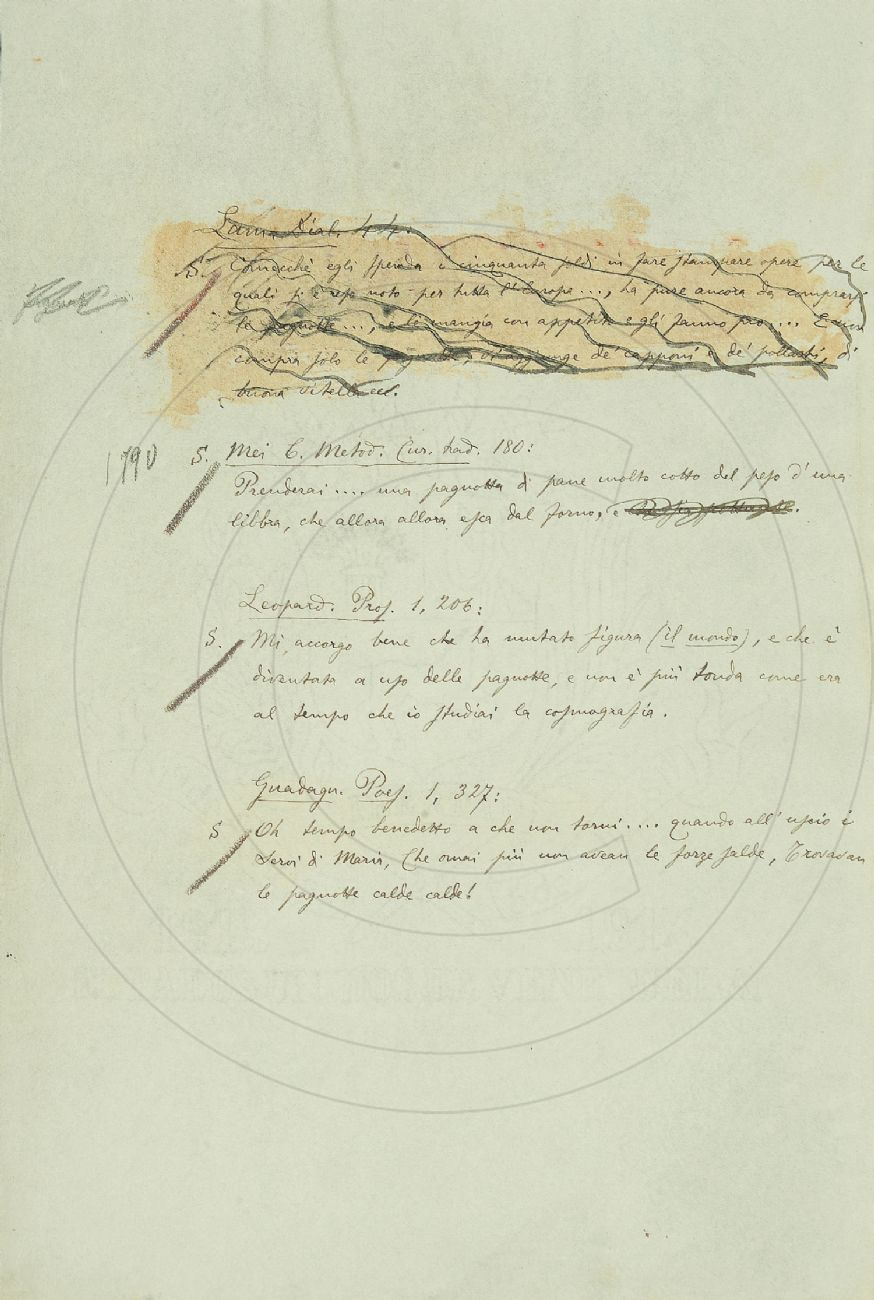 Lam. Dial. 44.
S. Comecchè egli spenda i cinquanta soldi in fare stampare opere per le
quali si è reso noto per tutta l'Europa..., ha pure ancora da comprarsi
le pagnotte..., e le mangia con appetito e gli fanno pro.... E non
compra solo le pagnotte, vi aggiunge de' capponi e de' pollastri, di
buona vitella ec.
1790
S. Mei C. Metod. Cur. trad. 180:
Prenderai.... una pagnotta di pane molto cotto del peso d'una
libbra, che allora allora esca dal forno, e
Leopard. Pros. 1, 206:
S. Mi accorgo bene che ha mutato figura (il mondo), e che è
diventata a uso delle pagnotte, e non è più tonda come era
al tempo che io studiai la cosmografia.
Guadagn. Poes. 1, 327:
S Oh tempo benedetto a che non torni.... quando all'uscio i
Servi di Maria, Che omai più non avean le forze salde, Trovavan
le pagnotte calde calde!